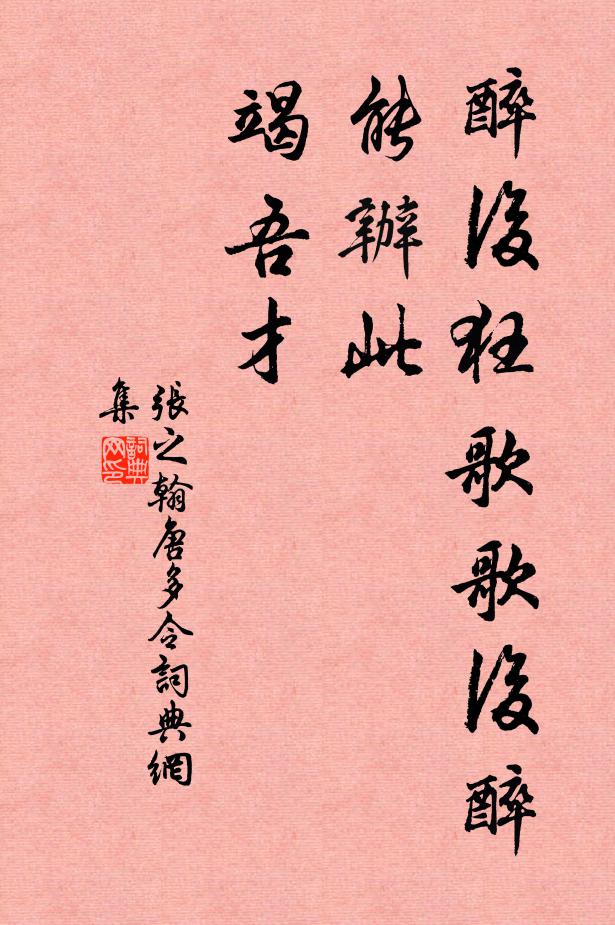 醉後狂歌歌後醉
能辦此
竭吾才
張之翰唐多令詞典網
集
詞典網印